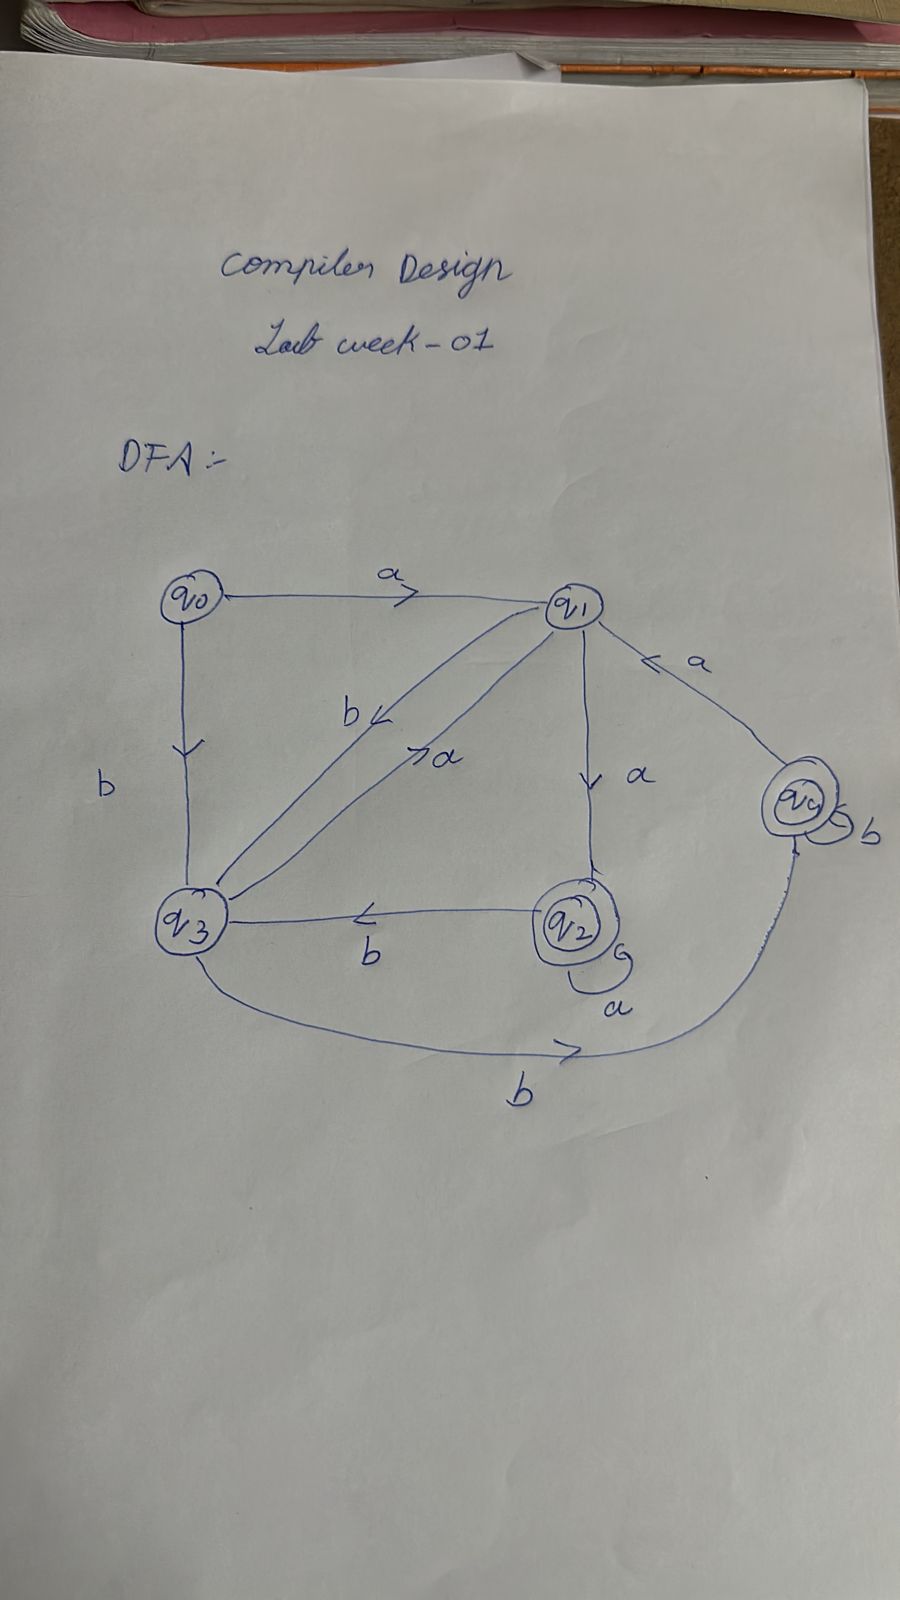 Compiler Design
Lab week-01
DFA :-
q0
a
q1
a
b
a
b
a
q4
b
q3
b
q2
a
b